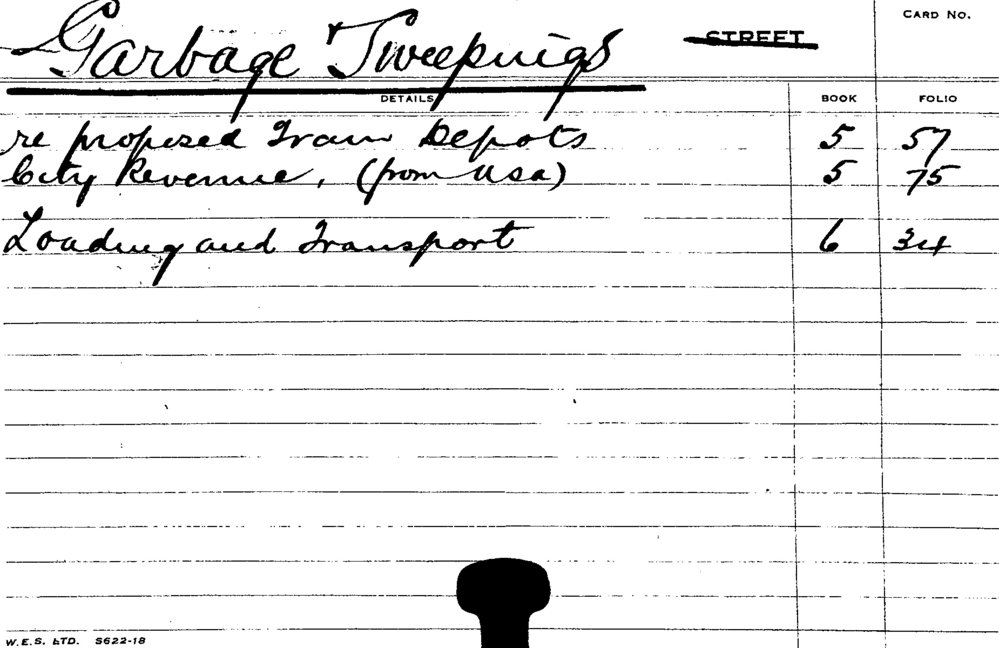 Garbage & Sweepings STREET CARD NO.
DETAILS BOOK FOLIO
re proposed Tram Depots 5 57
City Revenue, (from USA) 5 75
Loading and Transport 6 34
W.E.S. LTD. S622-18